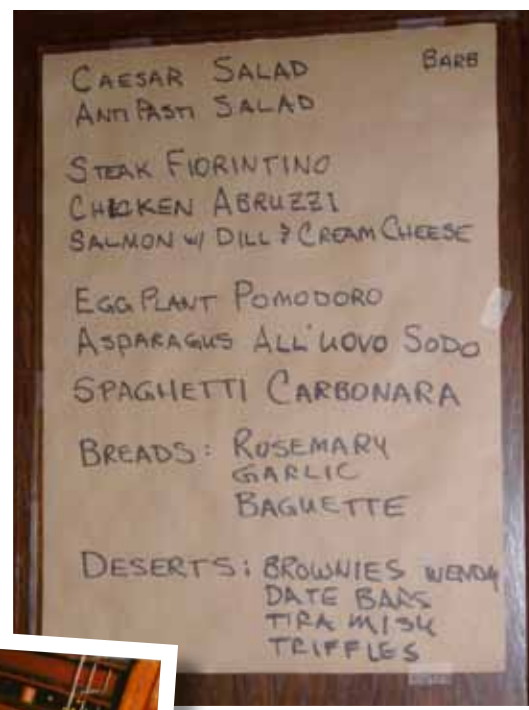 CAESAR SALAD BARB
ANTI PASTI SALAD
STEAK FIORINTINO
CHICKEN ABRUZZI
SALMON W/ DILL & CREAM CHEESE
EGG PLANT POMODORO
ASPARAGUS ALL'UOVO SODO
SPAGHETTI CARBONARA
BREADS: ROSEMARY
GARLIC
BAGUETTE
DESERTS: BROWNIES WENDY
DATE BARS
TIRA MISU
TRIFFLES